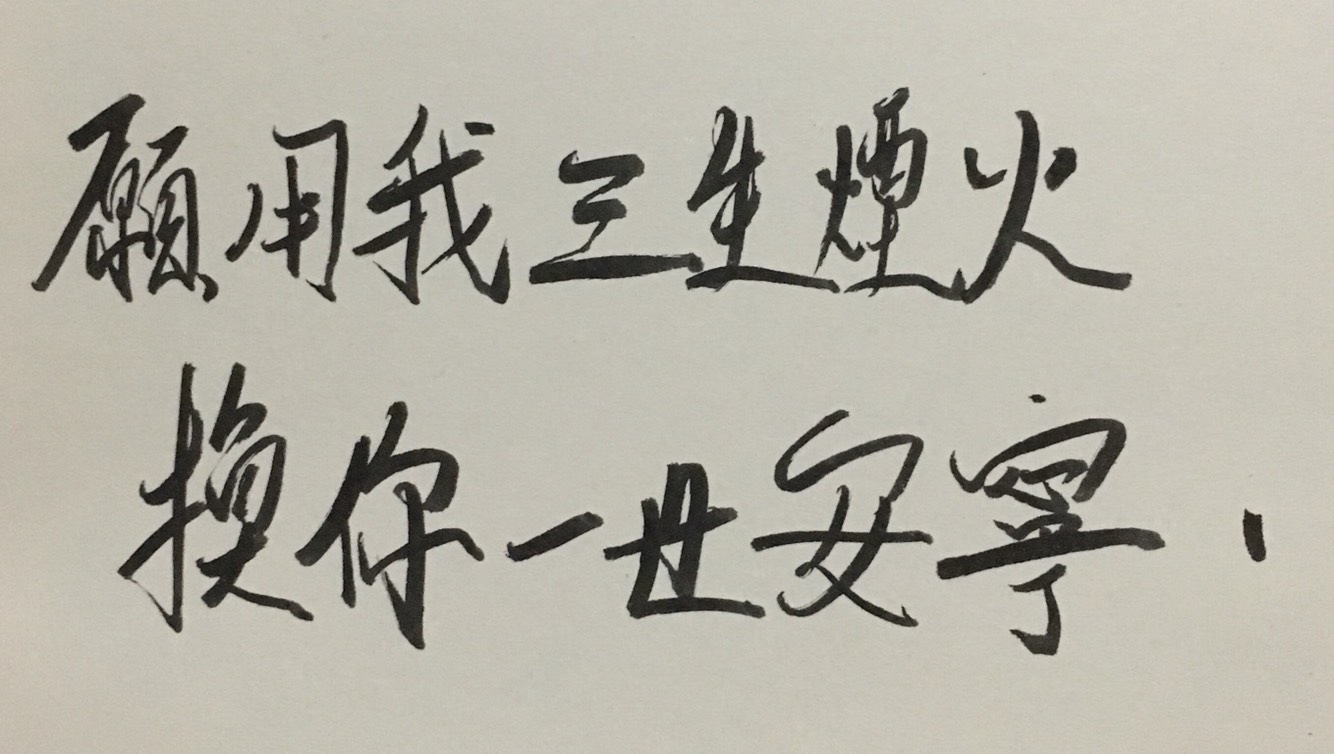 願用我三生煙火
換你一世安寧.